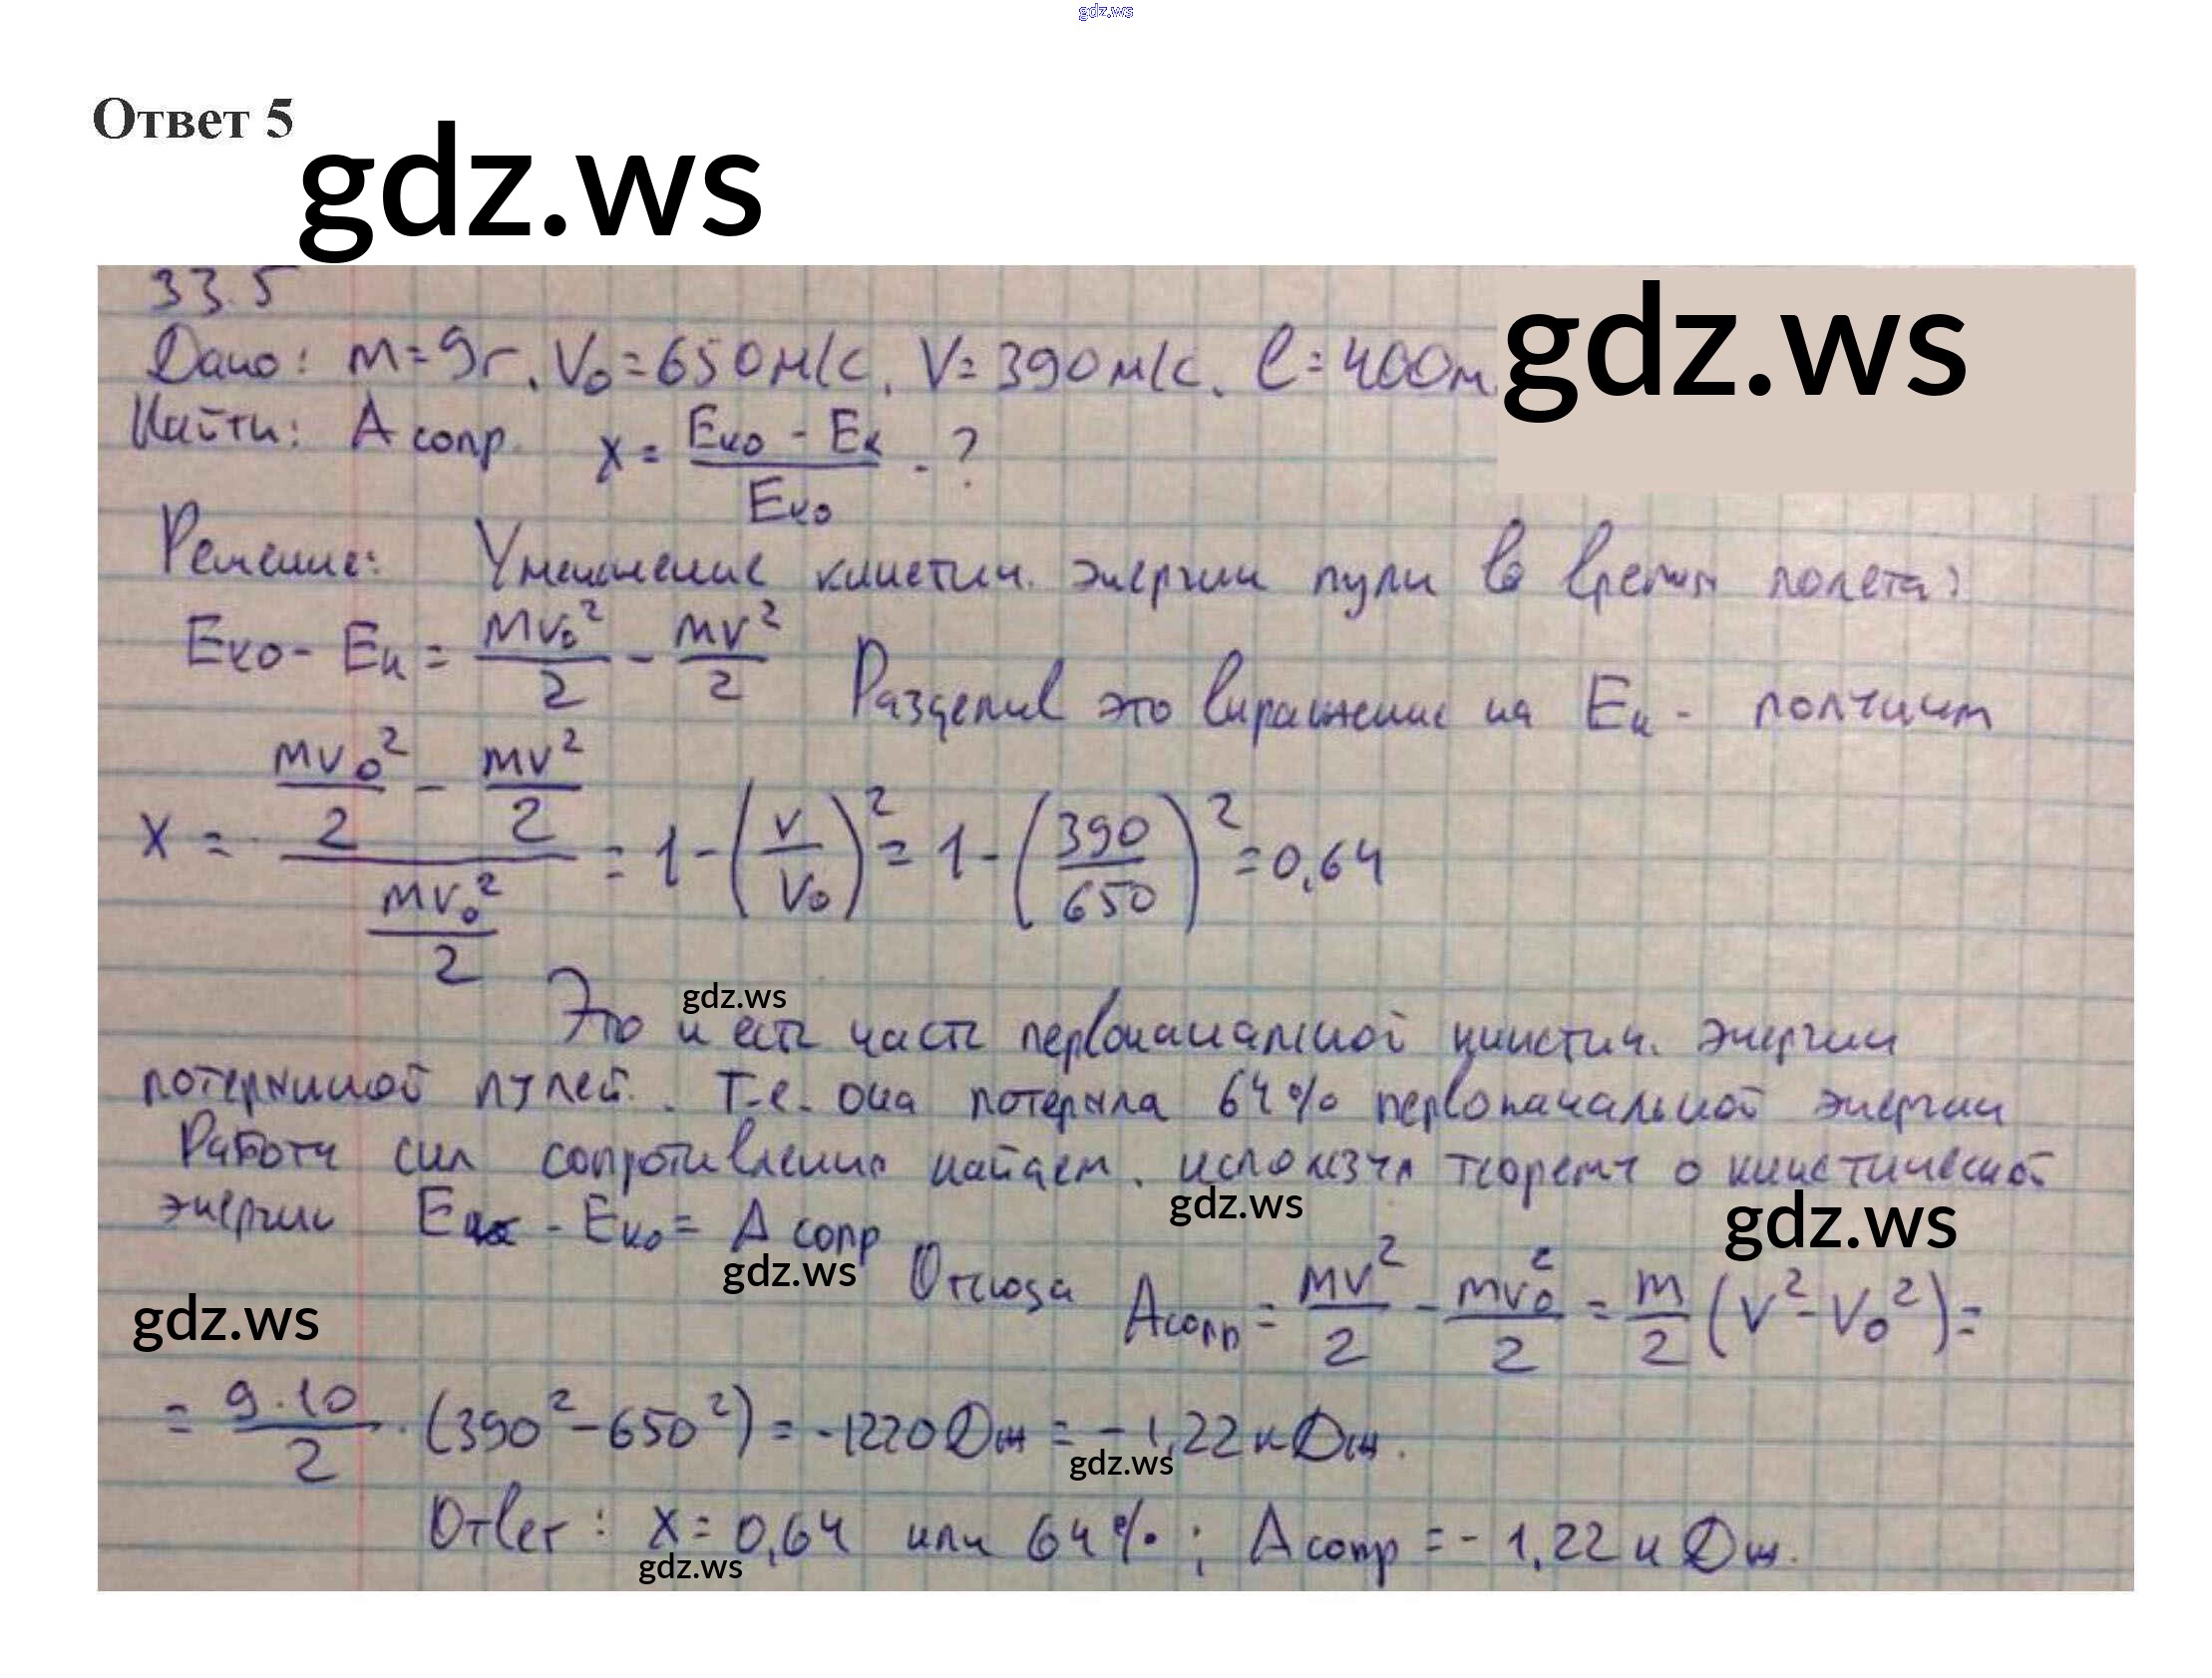 gdz.ws
Ответ 5
gdz.ws
33.5
gdz.ws
Дано: m=9г, V₀=650м/с, V=390м/с, l=400м.
Найти: A сопр. x = (Eк₀ - Eк)/Eк₀ - ?
Решение: Уменьшение кинетич. энергии пули во время полета:
Eк₀ - Eк = mv₀²/2 - mv²/2 Разделив это выражение на Eк - получим
x = (mv₀²/2 - mv²/2)/(mv₀²/2) = 1 - (v/v₀)² = 1 - (390/650)² = 0,64
gdz.ws
Это и есть часть первоначальной кинетич. энергии
потерянной пулей. Т.е. она потеряла 64% первоначальной энергии
Работу сил сопротивления найдем, используя теорему о кинетической
gdz.ws
энергии Eк - Eк₀ = A сопр
gdz.ws
gdz.ws
Отсюда Aсопр = mv²/2 - mv₀²/2 = m/2 (v² - v₀²) =
gdz.ws
= 9·10/2 · (390² - 650²) = -1220 Дж = -1,22 кДж.
gdz.ws
Ответ: x = 0,64 или 64%; A сопр = -1,22 кДж.
gdz.ws